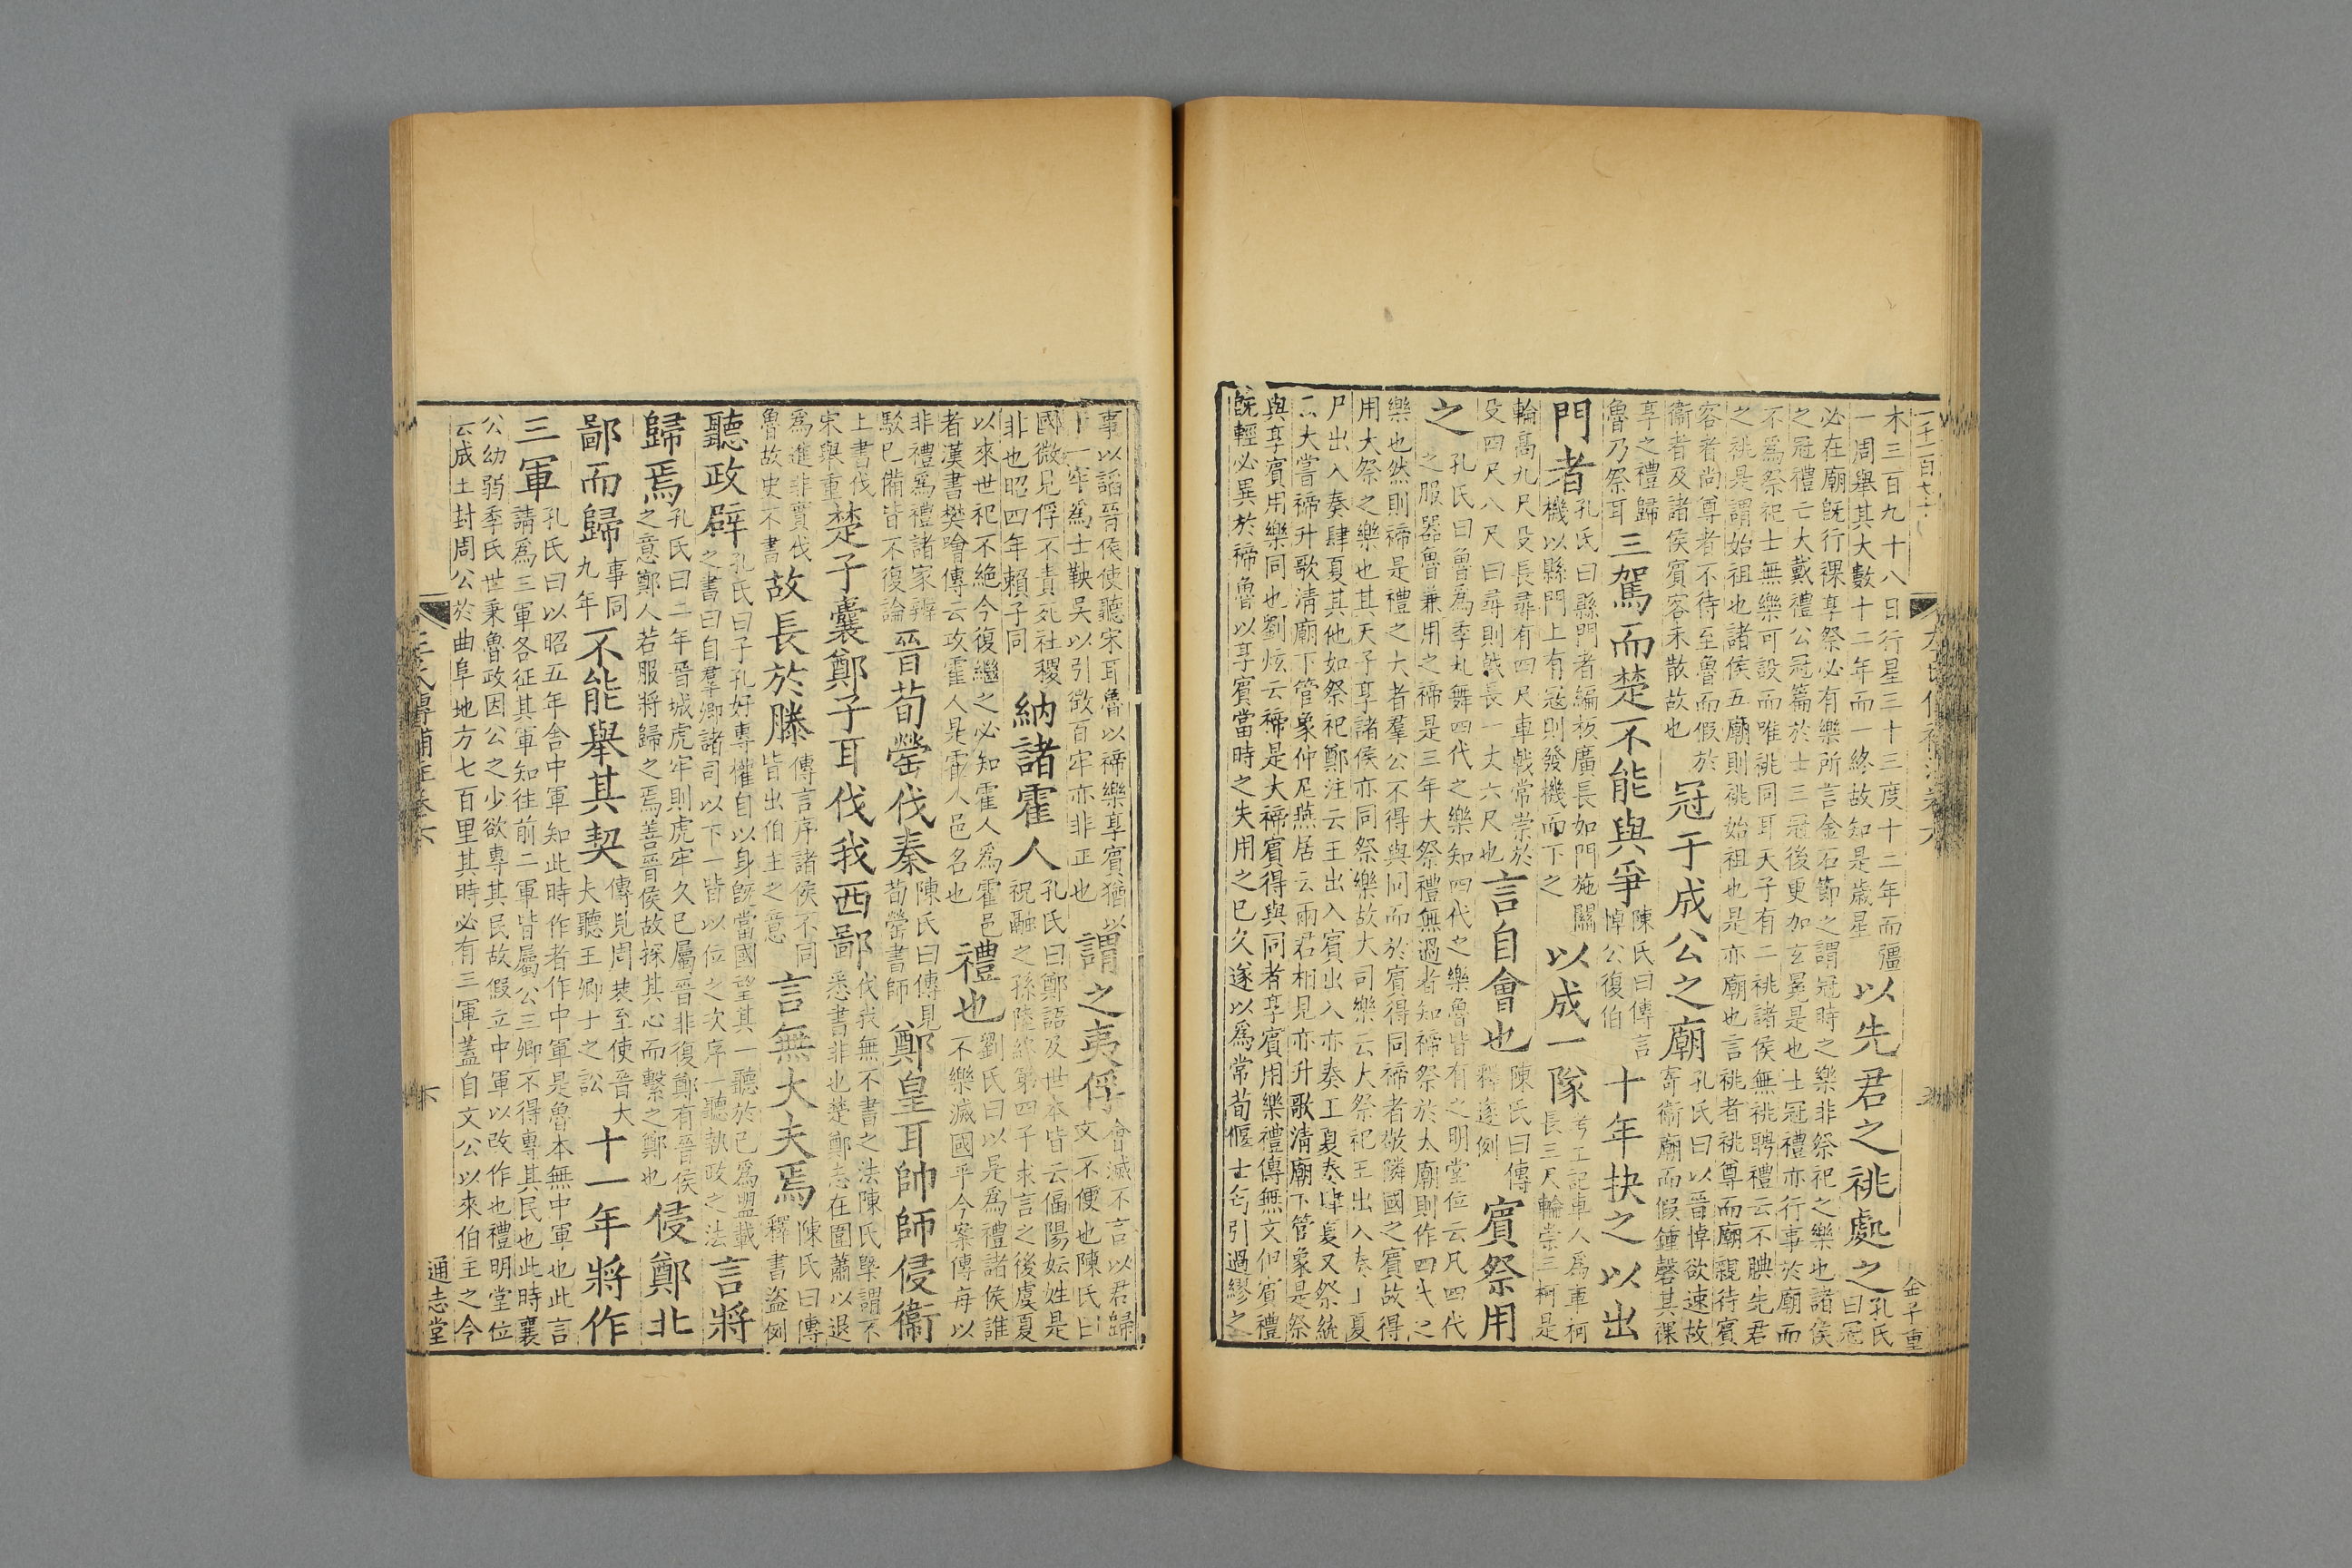 木三百九十八日行星三十三度十二年而彊
一周舉其大數十二年而一終故知是歲星
以先君之祧處之
孔氏
曰冠
必在廟旣行祼享祭必有樂所言金石節之謂冠時之樂非祭祀之樂也諸侯
之冠禮亡大戴禮公冠篇於士三冠後更加玄冕是也士冠禮亦行事於廟而
不爲祭祀士無樂可設而唯祧同耳天子有二祧諸侯無祧聘禮云不腆先君
之祧是謂始祖也諸侯五廟則祧始祖也是亦廟也言祧者祧尊而廟親待賓
容者尚尊者不待至魯而假於
衞者及諸侯賓客未散故也
冠于成公之廟
孔氏曰以晉悼欲速故
寄衞廟而假鍾磬其祼
享之禮歸
魯乃祭耳
三駕而楚不能與爭
陳氏曰傳言
悼公復伯
十年抉之以出
門者
孔氏曰縣門者編板廣長如門施關
機以縣門上有冦則發機而下之
以成一隊
考工記車人爲車柯
長三尺輪崇三柯是
輪高九尺殳長尋有四尺車戟常崇於
殳四尺八尺曰尋則戟長一丈六尺也
言自會也
陳氏曰傳
釋遂例
賓祭用
之
孔氏曰魯爲季札舞四代之樂知四代之樂魯皆有之明堂位云凡四代
之服器魯兼用之禘是三年大祭禮無過者知禘祭於太廟則作四代之
樂也然則禘是禮之大者羣公不得與同而於賓得同禘者敬隣國之賓故得
用大祭之樂也其天子享諸侯亦同祭樂故大司樂云大祭祀王出入奏王夏
尸出入奏肆夏其他如祭祀鄭注云王出入賓出入亦奏王夏奏肆夏又祭統
云大嘗禘升歌清廟下管象仲尼燕居云兩君相見亦升歌清廟下管象是祭
與享賓用樂同也劉炫云禘是大禘賓得與同者享賓用樂禮傳無文但賓禮
旣輕必異於禘魯以享賓當時之失用之已久遂以爲常荀偃士匄引過繆之
金子重
事以謟晉侯使聽宋耳魯以禘樂享賓猶以
十一牢爲士鞅吳以引徵百牢亦非正也
謂之夷俘
會滅不言以君歸
文不便也陳氏曰
國微見俘不責死社稷
非也昭四年賴子同
納諸霍人
孔氏曰鄭語及世本皆云偪陽妘姓是
祝融之孫陸終第四子求言之後虞夏
以來世祀不絶今復繼之必知霍人爲霍邑
者漢書樊噲傳云攻霍人是霍人邑名也
禮也
劉氏曰以是爲禮諸侯誰
不樂滅國乎今案傳每以
非禮爲禮諸家辨
駮已備皆不復論
晉荀罃伐秦
陳氏曰傳見
荀罃書師
鄭皇耳帥師侵衞
上書伐
宋與重
楚子囊鄭子耳伐我西鄙
伐我無不書之法陳氏槩謂不
悉書非也楚鄭志在圍蕭以退
爲進非實伐
魯故史不書
故長於滕
傳言序諸侯不同
皆出伯主之意
言無大夫焉
陳氏曰傳
釋書盜例
聽政辟
孔氏曰子孔好專權自以身旣當國望其一聽於已爲盟載
之書曰自羣卿諸司以下一皆以位之次序一聽執政之法
言將
歸焉
孔氏曰二年晉城虎牢則虎牢久已屬晉非復鄭有晉侯
之意鄭人若服將歸之焉善晉侯故探其心而繫之鄭也
侵鄭北
鄙而歸
事同
九年
不能舉其契
傳見周衰至使晉大
夫聽王卿士之訟
十一年將作
三軍
孔氏曰以昭五年舍中軍知此時作者作中軍是魯本無中軍也此言
請爲三軍各征其軍知往前二軍皆屬公三卿不得專其民也此時襄
公幼弱季氏世秉魯政因公之少欲專其民故假立中軍以改作也禮明堂位
云成王封周公於曲阜地方七百里其時必有三軍蓋自文公以來伯主之令
左氏傳補注卷六
通志堂